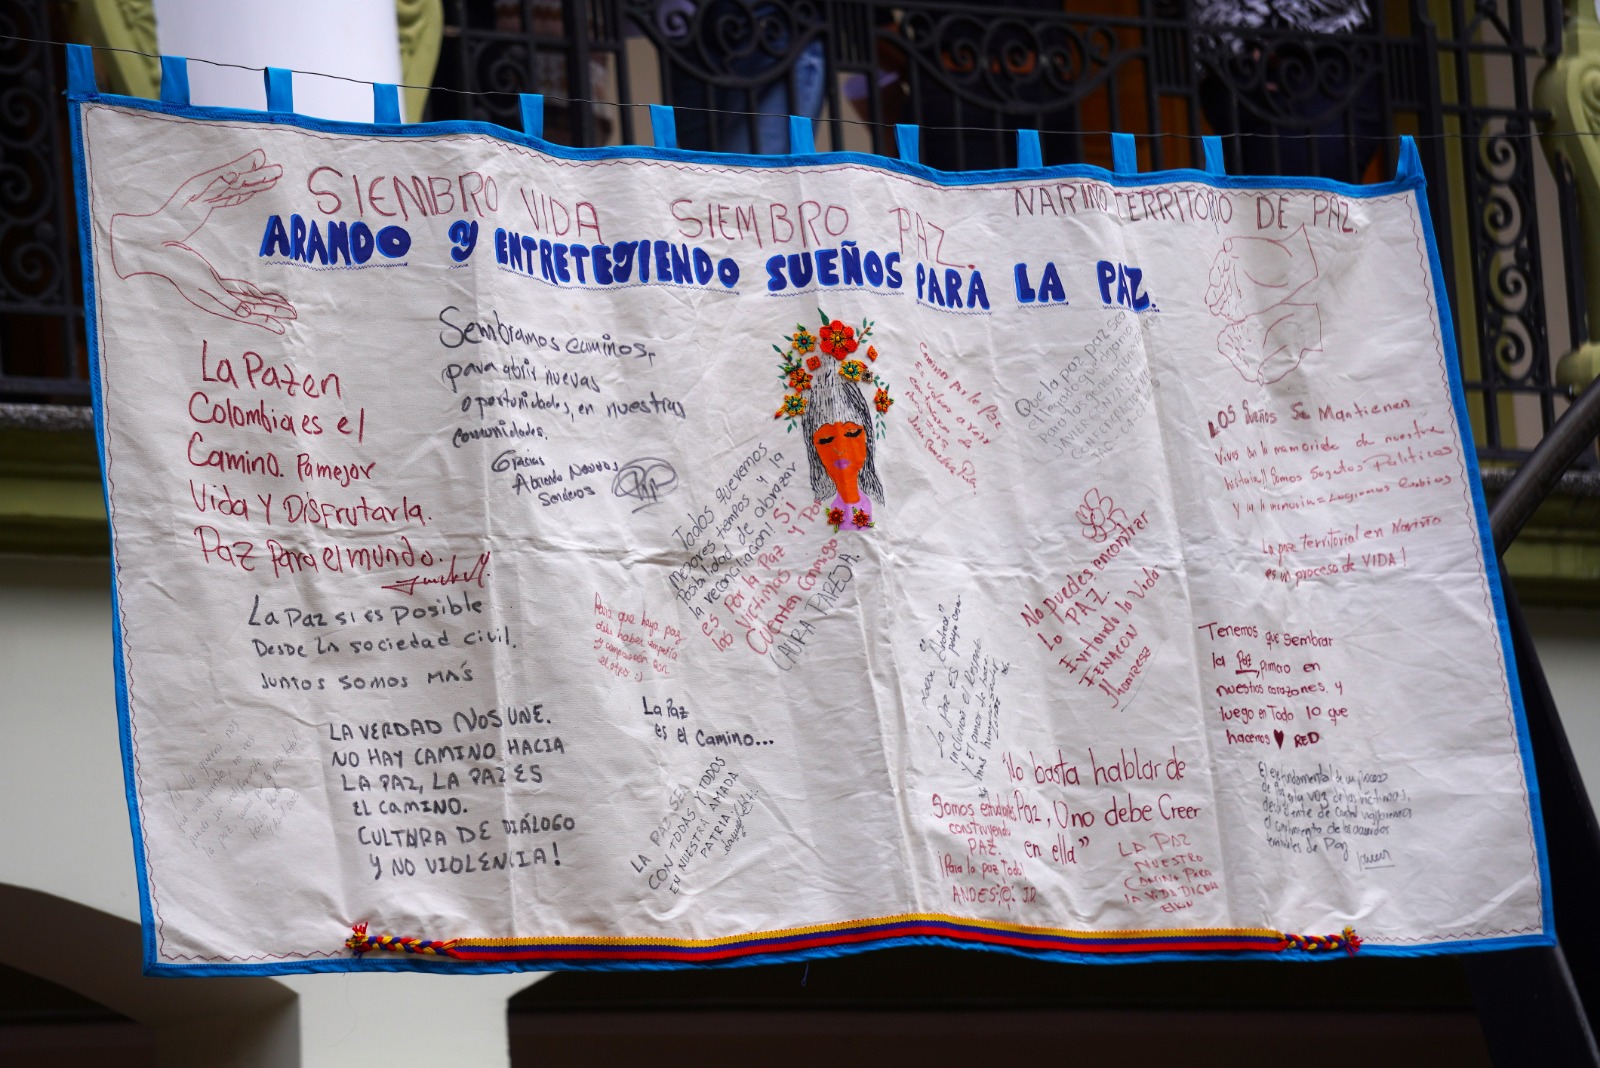 SIEMBRO VIDA SIEMBRO PAZ.
NARIÑO TERRITORIO DE PAZ.
ARANDO Y ENTRETEJIENDO SUEÑOS PARA LA PAZ.
La Paz en
Colombia es el
Camino. Pa mejor
Vida Y DISFrutarla.
Paz Para el mundo.
Sembramos caminos,
para abrir nuevas
oportunidades, en nuestras
comunidades.
Gracias
Abriendo Nuevos
Senderos
La Paz si es posible
Desde la sociedad civil.
Juntos somos más
LA VERDAD NOS UNE.
NO HAY CAMINO HACIA
LA PAZ, LA PAZ ES
EL CAMINO.
CULTURA DE DIÁLOGO
Y NO VIOLENCIA!
Todos queremos
mejores tiempos y la
posibilidad de abrazar
la reconciliación! Si
es Por la Paz y Por
las Victimas
Cuenten Conmigo
LAURA PAREJA.
Para que haya paz
debe haber empatía
y compasión con
el otro :)
La Paz
es el Camino...
LA PAZ SEA
CON TODAS Y TODOS
EN NUESTRA AMADA
PATRIA
Caminar por la Paz
es volver a
Que la paz, paz sea
el legado que dejamos
Para las generaciones
JAVIER
No puedes encontrar
La PAZ
Evitando la Vida.
FINACON
La paz es
incluir el Respeto
y El amor
"No basta hablar de
Paz, Uno debe Creer
en ella"
Somos estudiantes
construyendo
PAZ.
¡Para la paz Todo!
ANDES J.D
LA PAZ
NUESTRO
CAMINO PARA
LA VIDA DIGNA
ELKIN
LOS Sueños Se Mantienen
Vivos en la memoria de nuestra
historia!! Somos Sujetos Politicos
La paz territorial en Nariño
es un proceso de VIDA!
Tenemos que sembrar
la Paz primero en
nuestros corazones. y
luego en Todo lo que
hacemos ♥ RED
Es fundamental de un proceso
de paz la voz de las víctimas,
el cumplimiento de los acuerdos
de Paz